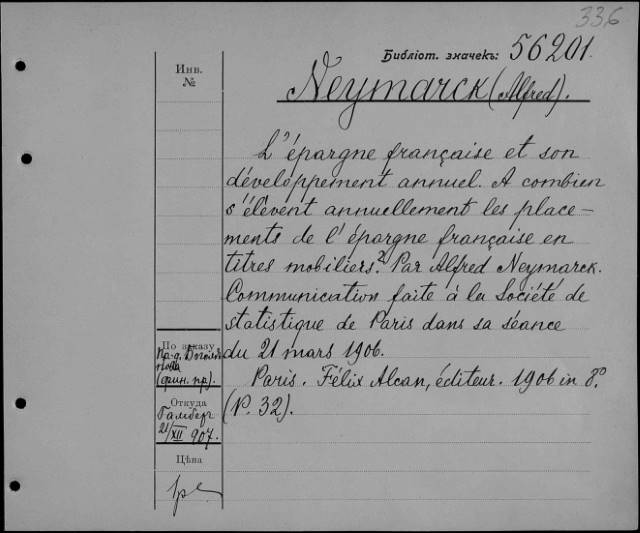 336
Библіот. значекъ: 56201.
Инв.
№
Neymarck (Alfred).
L'épargne française et son
développement annuel. A combien
s'élèvent annuellement les place-
ments de l'épargne française en
titres mobiliers? Par Alfred Neymarck.
Communication faite à la Société de
statistique de Paris dans sa séance
du 21 mars 1906.
Paris. Félix Alcan, éditeur. 1906 in 8°
(P. 32).
По заказу
пр-д.
(фин. пр).
Откуда
Гамберг
21/XII 907.
Цѣна